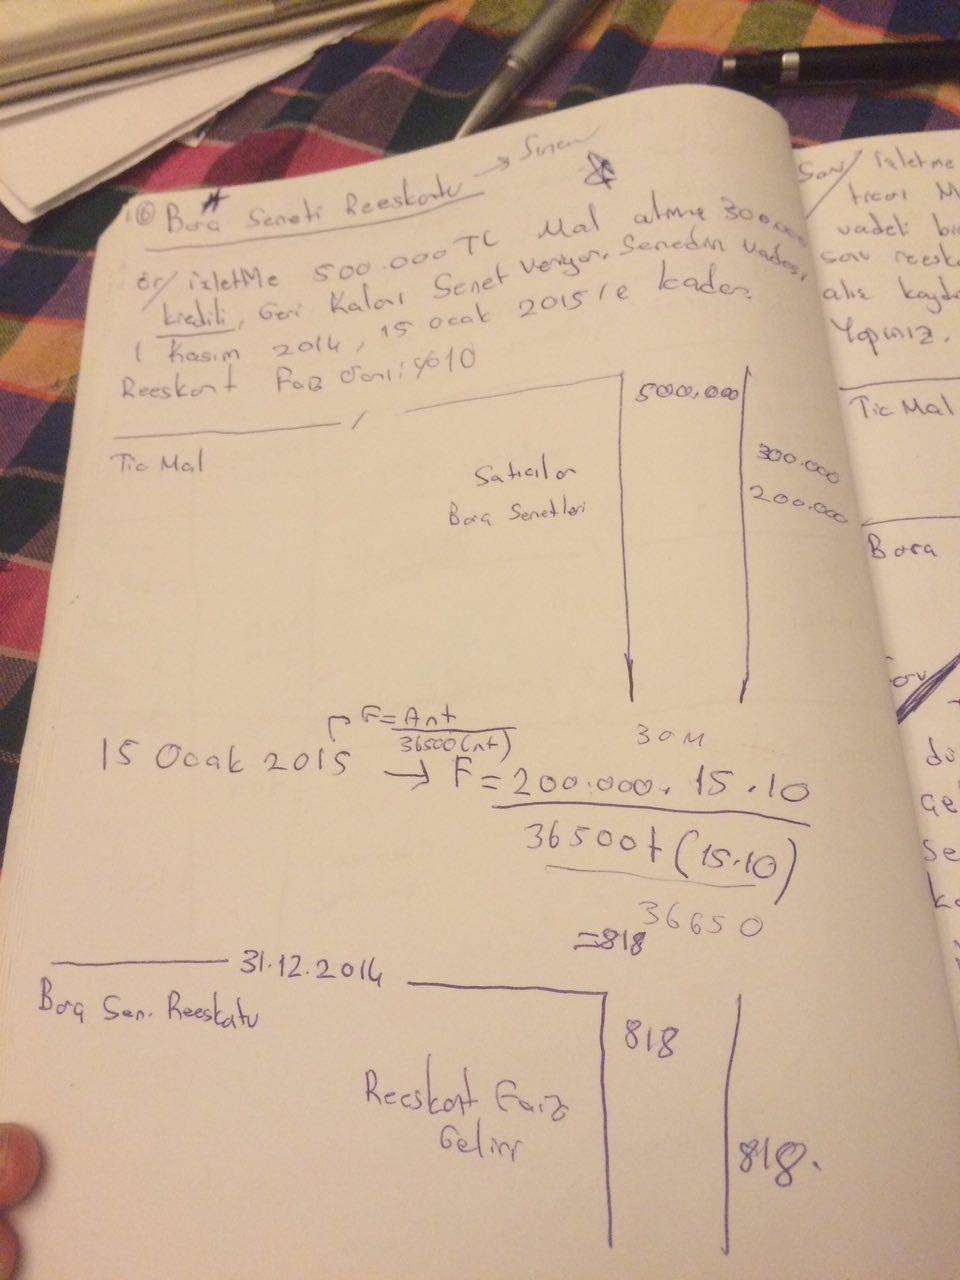 ⑥ Borç Seneti Reeskontu → Sınav
ör/ işletme 500.000 TL Mal almış 300.000
kredili, Geri Kalanı Senet veriyor. Senedin vadesi
1 Kasım 2014, 15 Ocak 2015'e kadar.
Reeskont Faiz Oranı: %10
/
Tic Mal 500.000
Satıcılar 300.000
Borç Senetleri 200.000
F = Ant
36500(nt)
15 Ocak 2015 → F = 200.000 . 15 . 10
36500 + (15.10)
36650
= 818
31.12.2014
Borç Sen. Reeskontu 818
Reeskont Faiz
Geliri 818.
Sav/ işletme
ticari M
vadeli bi
alış kaydı
Yapınız.
Tic Mal
Borç